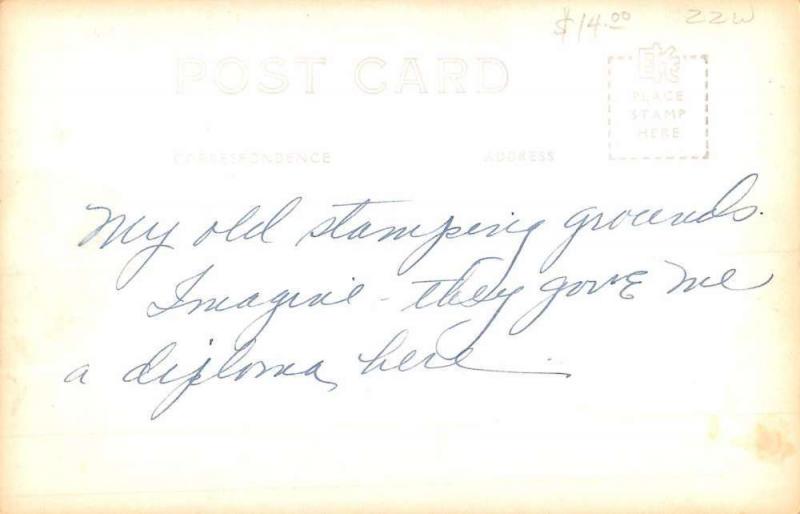 $14.00 22W
POST CARD
EKC
PLACE
STAMP
HERE
CORRESPONDENCE ADDRESS
My old stamping grounds.
Imagine - they gave me
a diploma here.